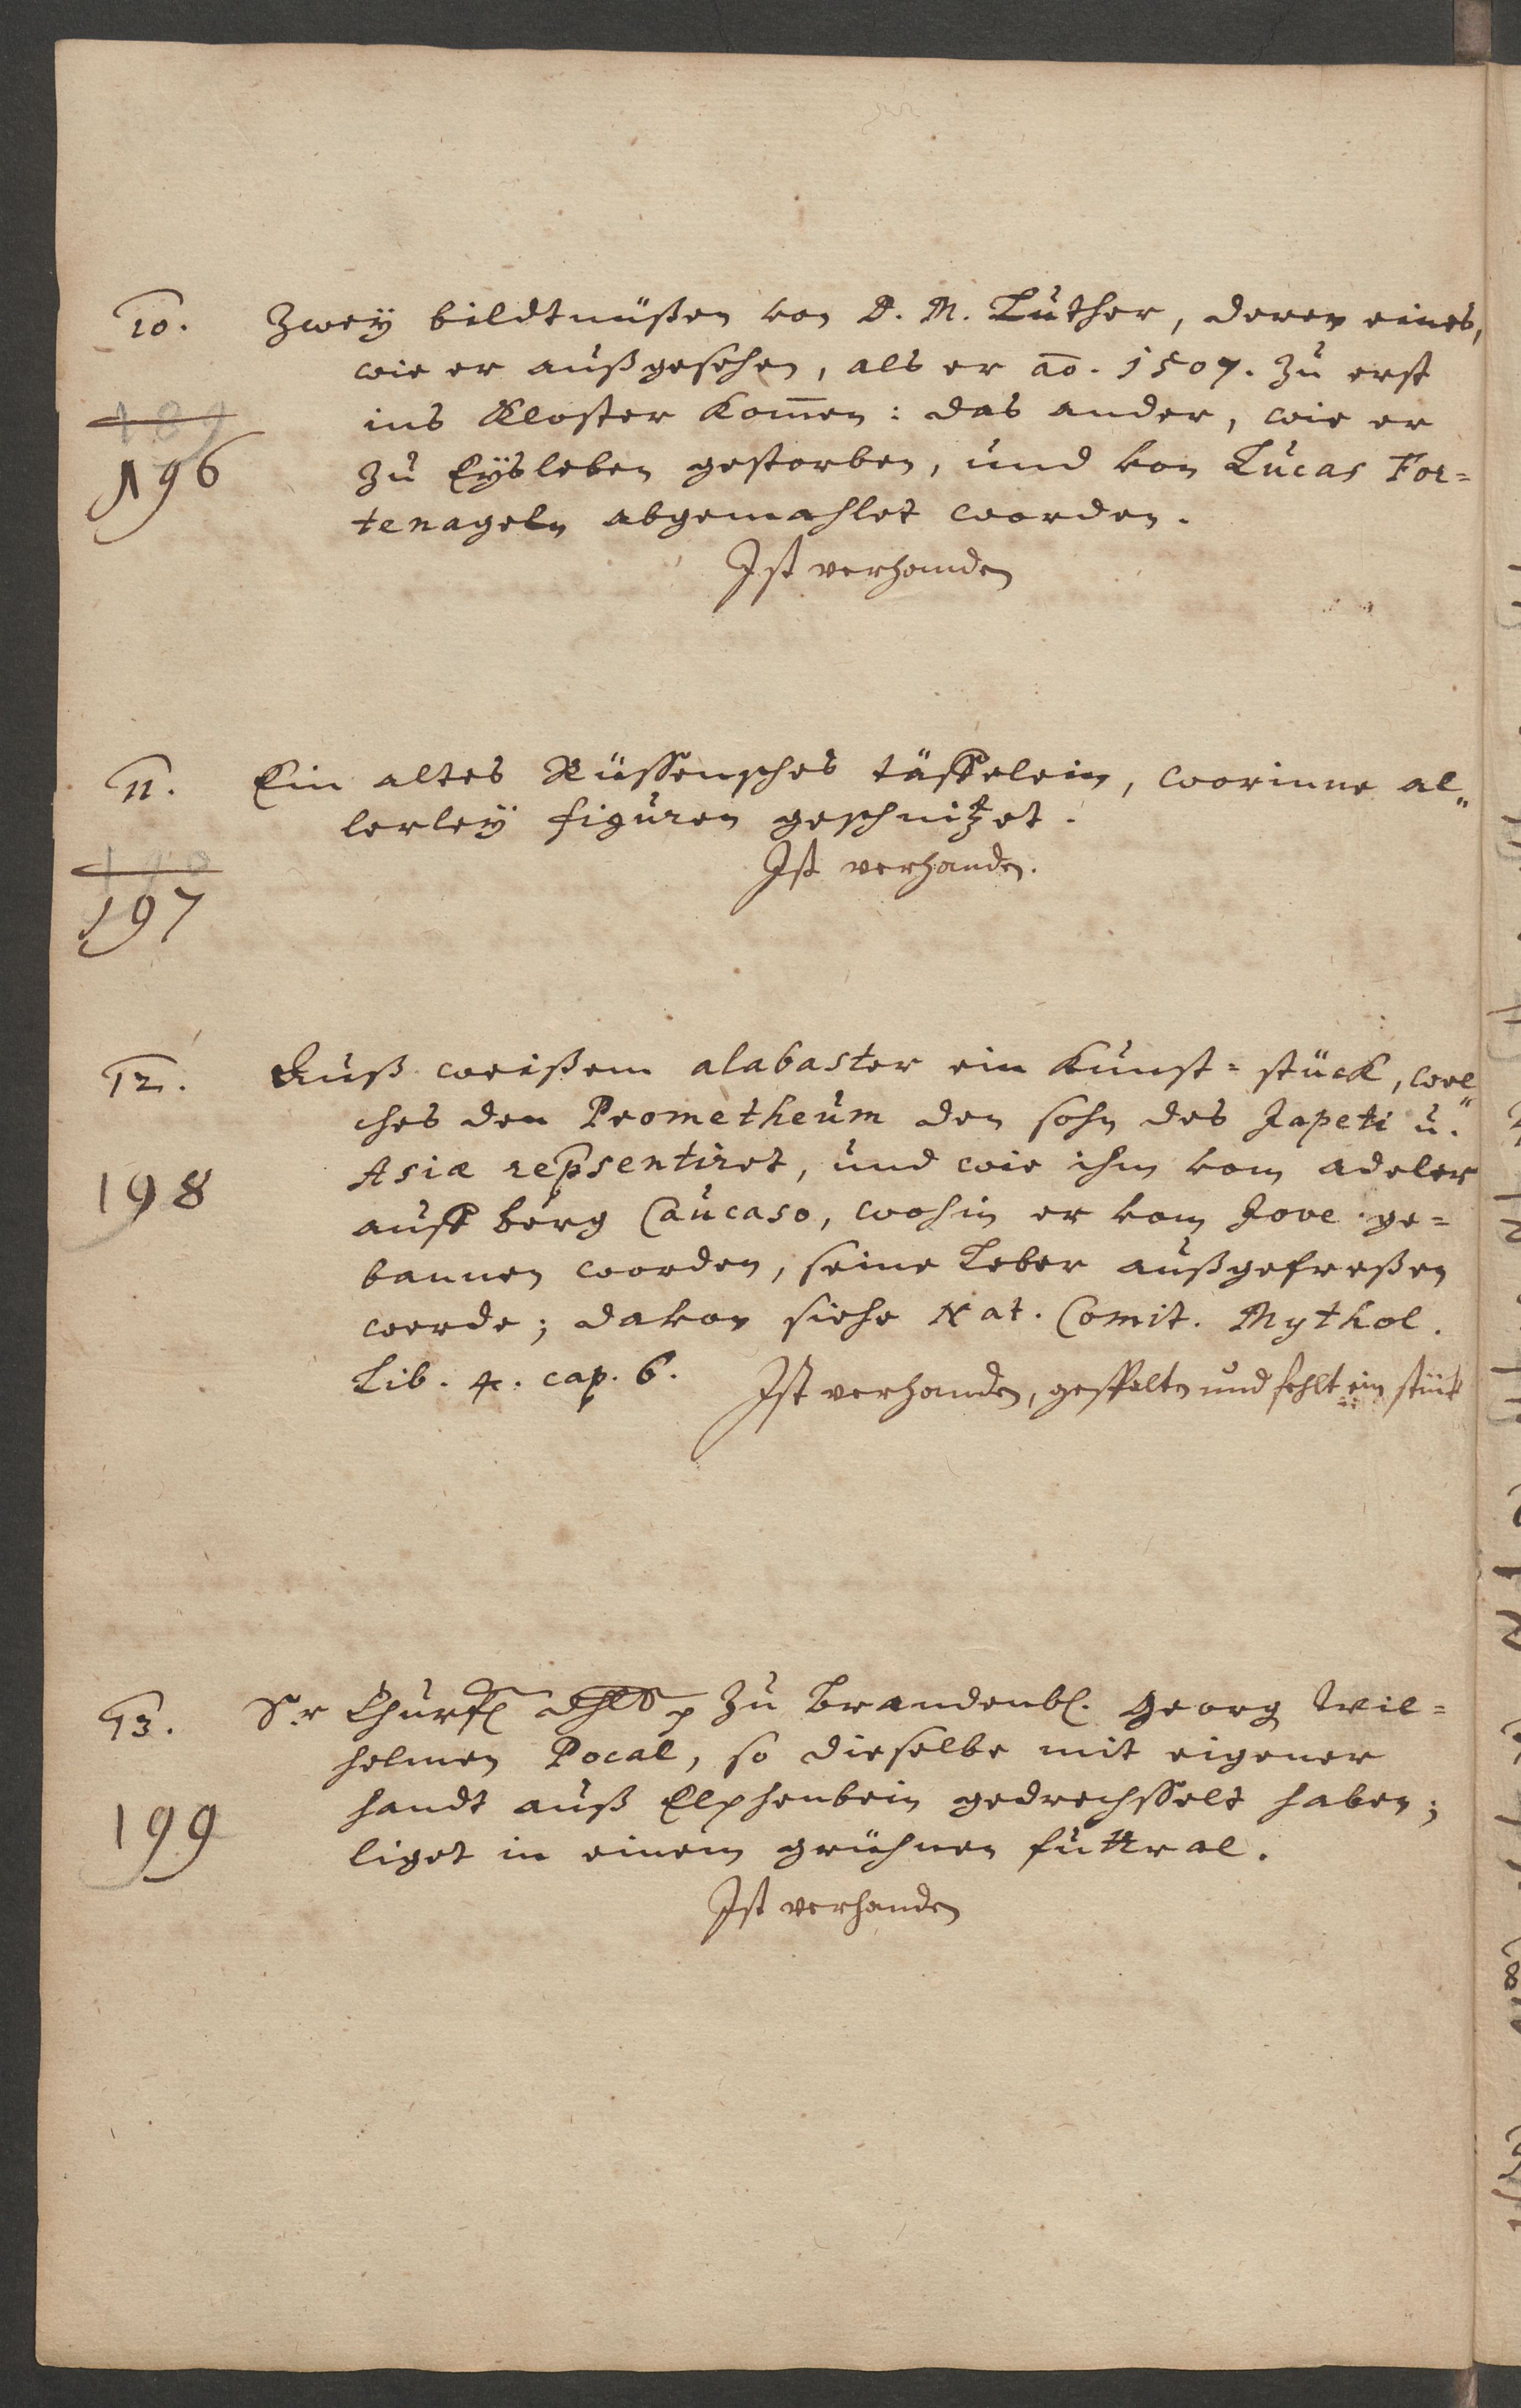 10. Zweÿ bildtnüßen von D. M. Luther, deren eines,
wie er außgesehen, als er ao. 1507. zu erst
ins Kloster kom̄en: das ander, wie er
189
196
zu Eÿsleben gestorben, und von Lucas For=
tenageln abgemahlet worden.
Ist verhanden
11. Ein altes Rüssensches täffelein, worinne al„
lerleÿ figuren geschnitzet.
190
Ist verhanden.
197
12. Auß weißem alabaster ein Kunst=stück, wel„
ches den Prometheum den sohn des Japeti u.
198
Asiæ rep̄sentiret, und wie ihm vom adeler
auff berg Caucaso, wohin er vom Jove ge=
bannen worden, seine Leber außgefreßen
werde; davon siehe Nat. Comit. Mythol.
Lib. 4. cap. 6. Ist verhanden, gespaltn und fehlt ein stük
13. Sr Churfl dhld p zu Brandenbl. Georg Wil=
helmen Pocal, so dieselbe mit eigener
199
handt auß Elphenbein gedrechsselt haben;
liget in einem grühnen futtral.
Ist verhanden